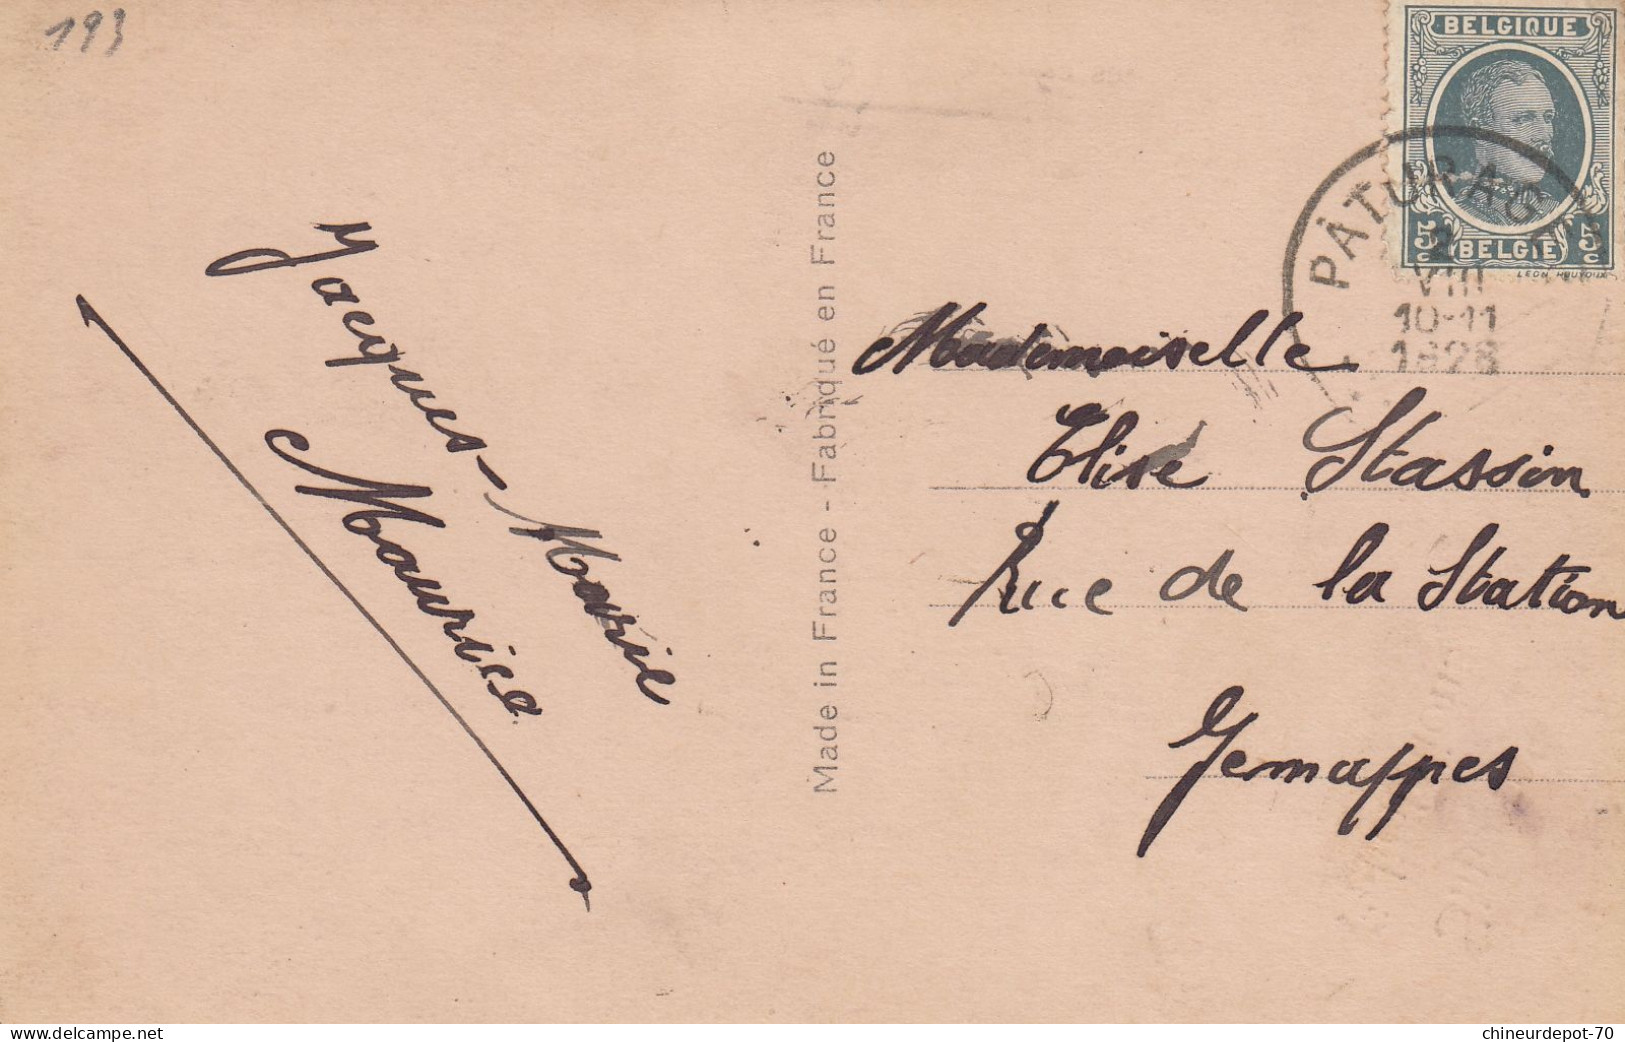 193
BELGIQUE
5c BELGIË 5c
PÂTURAGES
2
VIII
10-11
1928
Jacques-Marie
Maurice
Made in France - Fabriqué en France
Mademoiselle
Elise Stassin
Rue de la Station
Jemappes
www.delcampe.net
chineurdepot-70